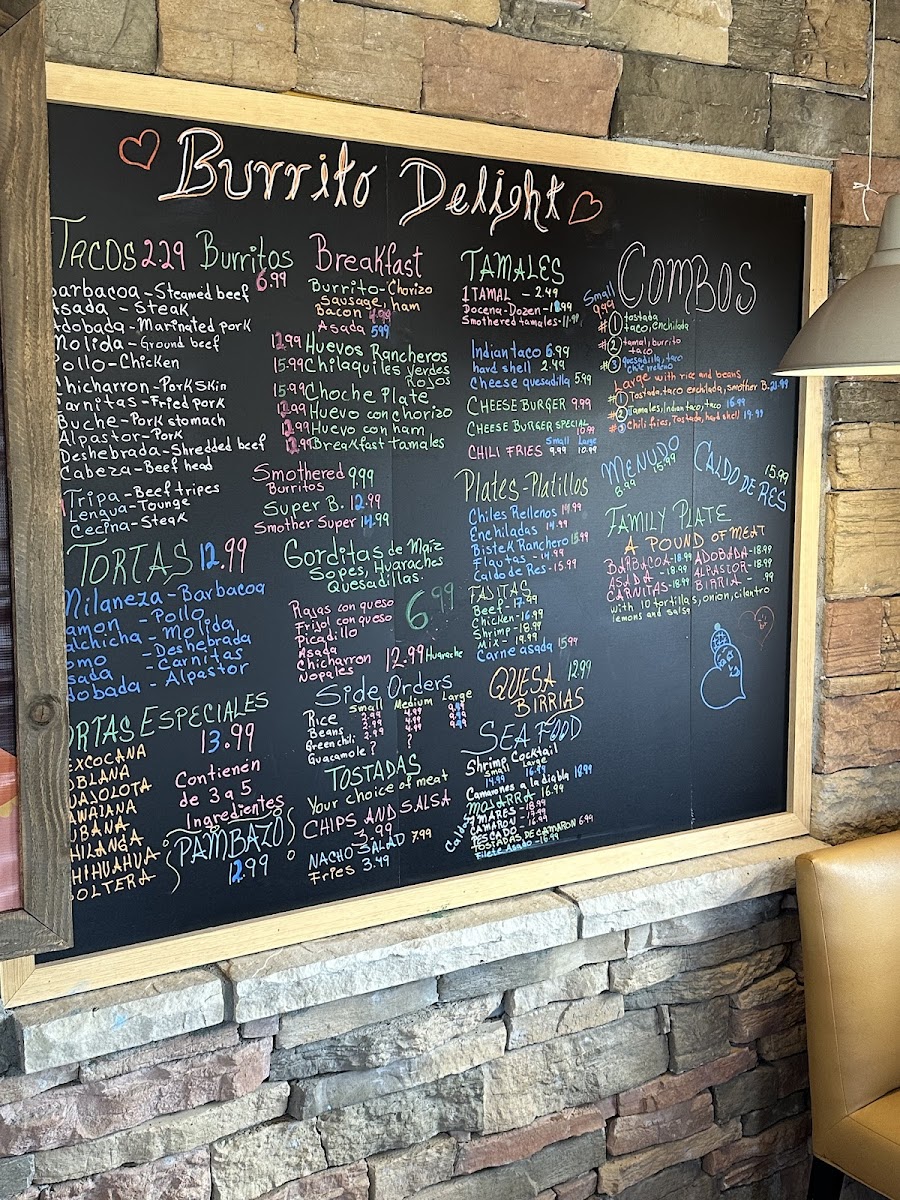 Burrito Delight
TACOS 2.29 Burritos 6.99
arbacoa - Steamed beef
Asada - Steak
Adobada - Marinated pork
Molida - Ground beef
Pollo - Chicken
Chicharron - Pork Skin
Carnitas - Fried pork
Buche - Pork stomach
Alpastor - Pork
Deshebrada - Shredded beef
Cabeza - Beef head
Tripa - Beef tripes
Lengua - Tounge
Cecina - Steak
TORTAS 12.99
Milaneza - Barbacoa
amon - Pollo
alchicha - Molida
omo - Deshebrada
sada - Carnitas
dobada - Alpastor
ORTAS ESPECIALES
13.99
EXCOCANA
OBLANA
UAJOLOTA
AWAIANA
UBANA
HILANGA
HIHUAHUA
OLTERA
Contienen
de 3 a 5
Ingredientes
PAMBAZO
12.99
Breakfast
Burrito - Chorizo
Sausage, ham
Bacon 4.99
Asada 5.99
Huevos Rancheros
15.99 Chilaquiles verdes
Rojos
15.99 Choche Plate
Huevo con chorizo
Huevo con ham
Breakfast tamales
Smothered 9.99
Burritos
Super B. 12.99
Smother Super 14.99
Gorditas de Maiz
Sopes, Huaraches
Quesadillas.
6.99
Rajas con queso
Frijol con queso
Picadillo
Asada
Chicharron 12.99 Huarache
Nopales
Side Orders
Small Medium Large
Rice 2.99 4.99 9.99
Beans 2.99 4.99 9.99
Green chili 2.99 4.99 9.99
Guacamole ? ?
TOSTADAS
Your choice of meat
CHIPS AND SALSA
3.99
NACHO SALAD 7.99
Fries 3.49
TAMALES
1 TAMAL - 2.49
Docena - Dozen -
Smothered tamales - 11.99
Indian taco 6.99
hard shell 2.49
Cheese quesadilla 5.99
CHEESE BURGER 9.99
CHEESE BURGER SPECIAL
10.99
Small Large
CHILI FRIES 9.99 10.99
Plates - Platillos
Chiles Rellenos 14.99
Enchiladas 14.99
Bistek Ranchero 15.99
Flautas - 14.99
Caldo de Res - 15.99
FAJITAS
Beef - 17.99
Chicken - 16.99
Shrimp - 18.99
Mix - 19.99
Carne asada 15.99
QUESA 12.99
BIRRIAS
SEA FOOD
Shrimp Cocktail
Small Large
14.99 16.99
Camarones a la diabla 18.99
MOJARRA - 16.99
Caldos
7 MARES - 18.99
CAMARON - 17.99
PESCADO - 16.99
TOSTADAS DE CAMARON 6.99
Filete Asado - 16.99
COMBOS
Small
9.99
#1 tostada
taco, enchilada
#2 tamal, burrito
taco
#3 quesadilla, taco
chile relleno
Large with rice and beans
#1 Tostada, taco enchilada, smother B. 21.99
#2 Tamales, Indian taco, taco 16.99
#3 Chili fries, Tostada, hard shell 19.99
MENUDO
8.99 15.99
CALDO DE RES
15.99
FAMILY PLATE
A POUND OF MEAT
BARBACOA - 18.99 ADOBADA - 18.99
ASADA - 18.99 ALPASTOR - 18.99
CARNITAS - 18.99 BIRRIA - .99
with 10 tortillas, onion, cilantro
lemons and salsa